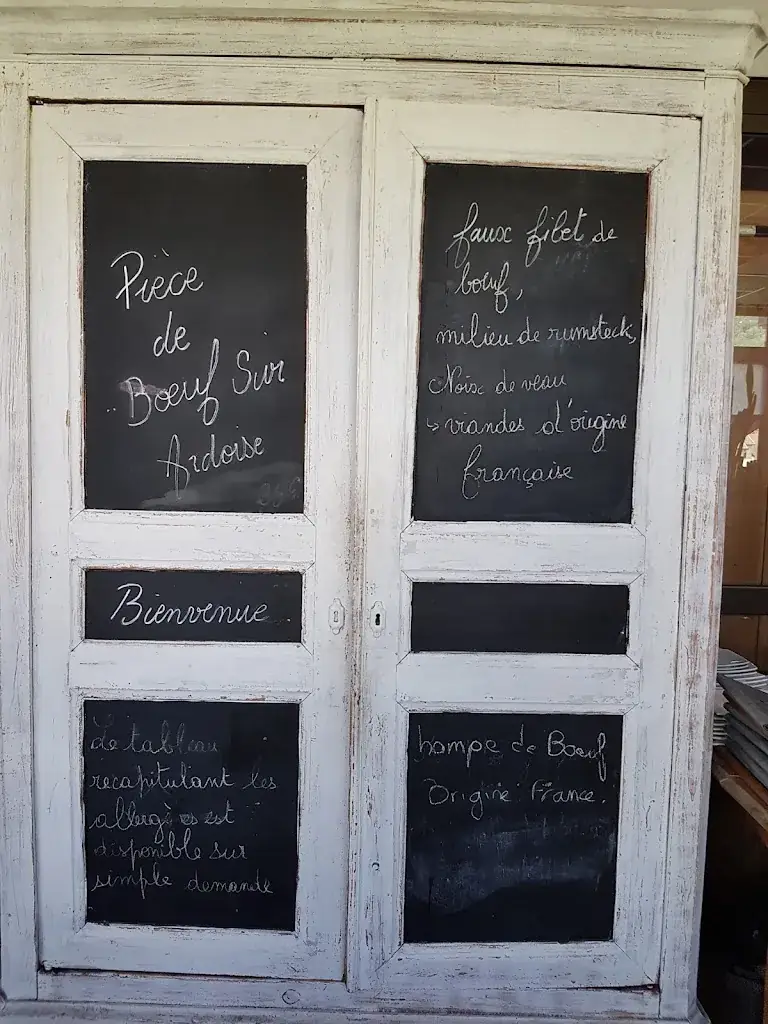 Pièce
de
Boeuf Sur
Ardoise
Bienvenue
Le tableau
recapitulant les
allergènes est
disponible sur
simple demande
faux filet de
boeuf,
milieu de rumsteck,
Noix de veau
↳ viandes d'origine
française
hampe de Boeuf
Origine France.